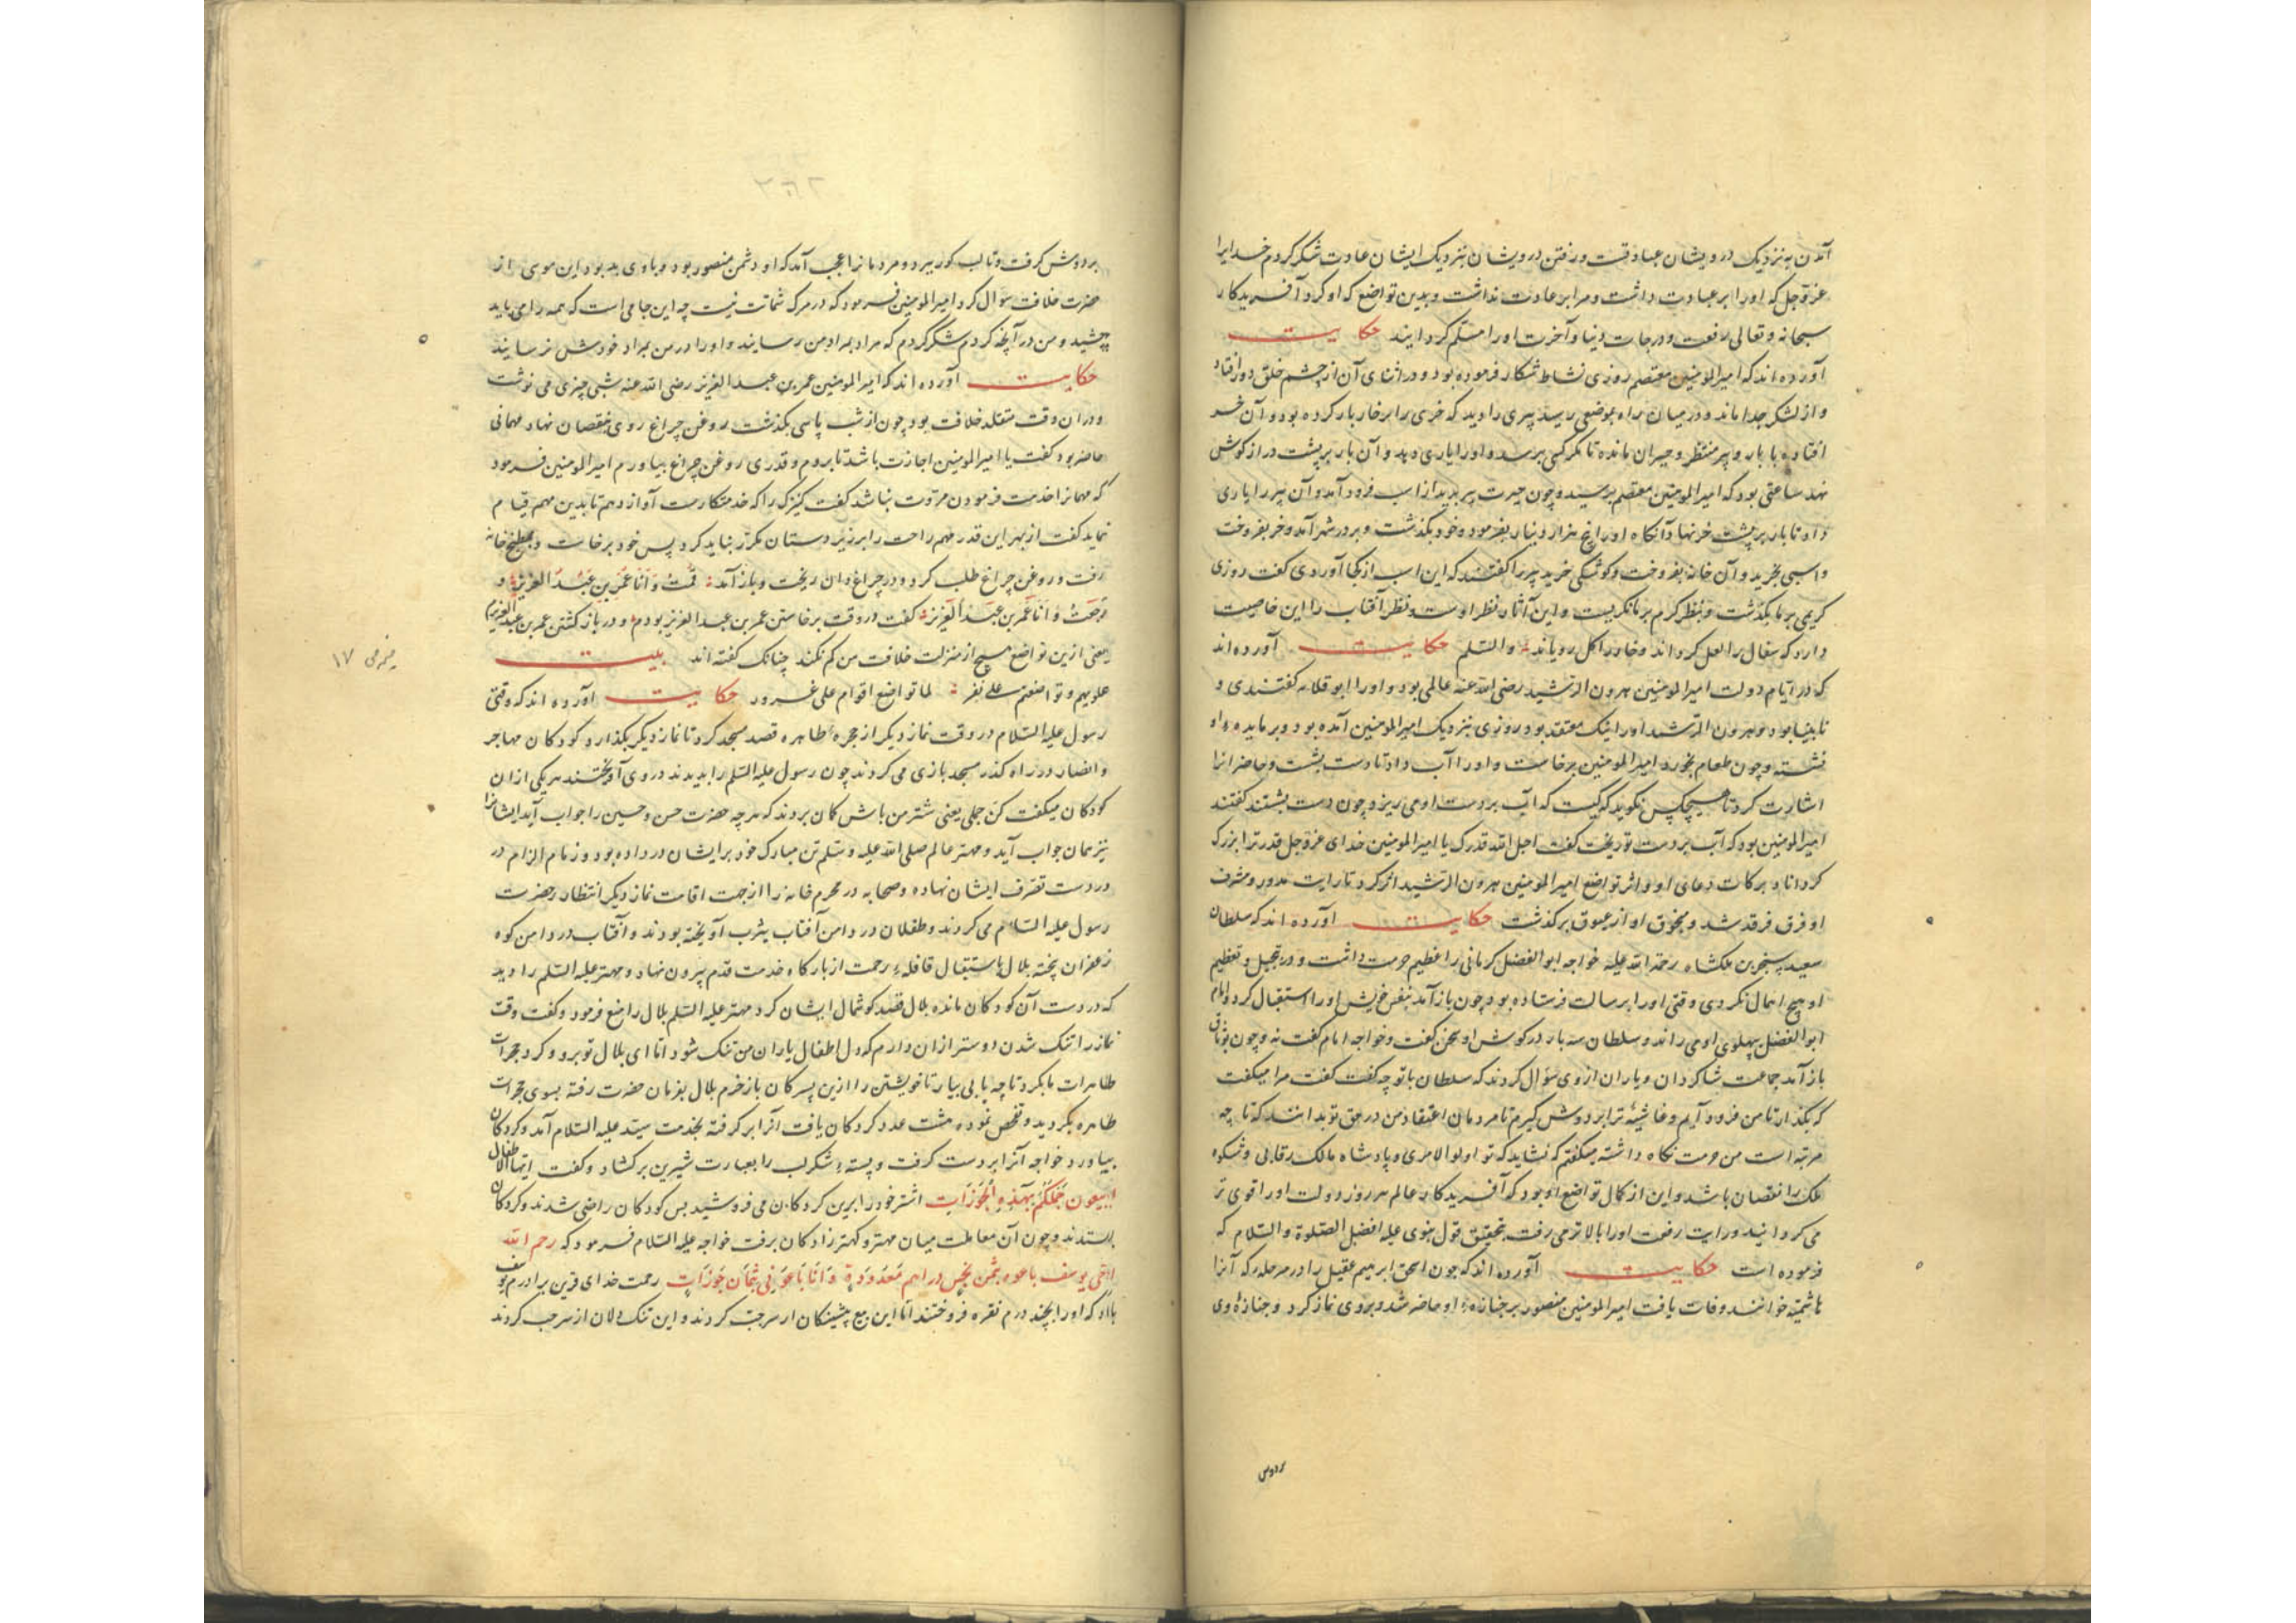 آمدن به نزدیک درویشان عبادتست و رفتن درویشان بنزدیک ایشان عادت شکر کردم خدایرا
عز و جل که او را بر عبادت داشت و مرا بر عادت نداشت و بدین تواضع که او کرد آفریدکار
سبحانه و تعالی رفعت و درجات دنیا و آخرت او را مسلم کردانید حکایت
آورده اند که امیرالمومنین معتصم روزی نشاط شکار فرموده بود و در اثنای آن از چشم خلق دور افتاد
و از لشکر جدا ماند و در میان راه بموضعی رسید پیری را دید که خری را بر خار بار کرده بود و آن خر
افتاده با بار و پیر منتظر و حیران مانده تا مکر کسی برسد و او را یاری دهد و آن بار بر پشت دراز کوش
نهد ساعتی بود که امیرالمومنین معتصم برسید و چون حیرت پیر بدید از اسب فرود آمد و آن پیر را یاری
داد تا بار بر پشت خر نهاد آنکاه او را پنج هزار دینار بفرمود و خود بکذشت و پیر در شهر آمد و خر بفروخت
و اسبی بخرید و آن خانه بفروخت و کوشکی خرید پیر را کفتند که این اسب از کجا آوردی کفت روزی
کریمی بر ما بکذشت و بنظر کرم بر ما نکریست و این آثار نظر اوست و نظر آفتاب را این خاصیت
دارد که سفال را لعل کرداند و خار را کل رویاند والسلم حکایت آورده اند
که در ایام دولت امیرالمومنین هرون الرشید رضی الله عنه عالمی بود و او را ابو قلابه کفتندی و
نابینا بود و هرون الرشید او را نیک معتقد بود روزی بنزدیک امیرالمومنین آمده بود و بر مایده او
نشسته و چون طعام بخورد امیرالمومنین برخاست و او را آب داد تا دست بشست و حاضرانرا
اشارت کرد تا هیچکس نکوید که کیست که آب بر دست او می ریزد چون دست بشستند کفتند
امیرالمومنین بود که آب بر دست تو ریخت کفت اجل الله قدرک یا امیرالمومنین خدای عز و جل قدر ترا بزرک
کرداناد برکات دعای او و اثر تواضع امیرالمومنین هرون الرشید اثر کرد تا رایت مدور و مشرف
او فرق فرقد شد و منجوق او از عیوق برکذشت حکایت آورده اند که سلطان
سعید سنجر بن ملکشاه رحمة الله علیه خواجه ابوالفضل کرمانی را عظیم حرمت داشت و در تبجیل و تعظیم
او هیچ اهمال نکردی وقتی او را برسالت فرستاده بود چون باز آمد بنفس خویش او را استقبال کرد و امام
ابوالفضل پهلوی او می راند و سلطان سه بار در کوش او سخن کفت و خواجه امام کفت نه و چون بوثاق
باز آمد جماعت شاکردان و یاران از وی سؤال کردند که سلطان با تو چه کفت کفت مرا میکفت
که بکذار تا من فرود آیم و غاشیه ترا بر دوش کیرم تا مردمان اعتقاد من در حق تو بدانند که تا چه
مرتبه است من حرمت نکاه داشته میکفتم که نشاید که تو اولوالامری و پادشاه مالک رقابی و شکوه
ملک را نقصان باشد و این از کمال تواضع او بود که آفریدکار عالم هر روز دولت او را قوی تر
می کردانید و رایت رفعت او را بالاتر می رفت بتحقیق قول نبوی علیه افضل الصلوة والسلام که
فرموده است حکایت آورده اند که چون اسحق ابرهیم عقیل را در مرحله که آنرا
هاشمیه خوانند وفات یافت امیرالمومنین منصور بر جنازه او حاضر شد و بر وی نماز کرد و جنازه وی
بردوش
بر دوش کرفت و تا لب کور ببرد و مردمانرا عجب آمد که او دشمن منصور بود و با وی بد بود این موسی از
حضرت خلافت سوال کرد امیرالمومنین فرمود که در مرک شماتت نیست چه این جامی است که همه را می باید
چشید و من در آنچه کردم شکر کردم که مرا بمراد من رسانید و او را در من بمراد خودش نرسانید
حکایت آورده اند که امیرالمومنین عمر بن عبدالعزیز رضی الله عنه شبی چیزی می نوشت
و دران وقت متقلد خلافت بود چون از شب پاسی بکذشت روغن چراغ روی بنقصان نهاد مهمانی
حاضر بود کفت یا امیرالمومنین اجازت باشد تا بروم و قدری روغن چراغ بیاورم امیرالمومنین فرمود
که مهمانرا خدمت فرمودن مروت نباشد کفت کنیزک را که خدمتکارست آواز دهم تا بدین مهم قیام
نماید کفت از بهر این قدر مهم راحت را بر زیردستان مکدر نباید کرد پس خود برخاست و بمطبخ خانه
رفت و روغن چراغ طلب کرد و در چراغدان ریخت و باز آمد قمت و انا عمر بن عبدالعزیز و
رجعت و انا عمر بن عبدالعزیز کفت در وقت برخاستن عمر بن عبدالعزیز بودم و در باز کشتن عمر بن عبدالعزیزم
یعنی ازین تواضع هیچ از منزلت خلافت من کم نکند چنانک کفته اند بیت
علویهم و تواضعهم علی نفر لما تواضع اقوام علی غرور حکایت آورده اند که وقتی
رسول علیه السلام در وقت نماز دیکر از حجره طاهره قصد مسجد کرد تا نماز دیکر بکذارد و کودکان مهاجر
و انصار در راه کذر مسجد بازی می کردند چون رسول علیه السلم را بدیدند در وی آویختند هر یکی ازان
کودکان میکفت کن جملی یعنی شتر من باش کمان بردند که هر چه حضرت حسن و حسین را جواب آید ایشانرا
نیز همان جواب آید و مهتر عالم صلی الله علیه و سلم تن مبارک خود بر ایشان در داده بود و زمام الزام در
در دست تصرف ایشان نهاده و صحابه در محرم خانه را از جهت اقامت نماز دیکر انتظار حضرت
رسول علیه السلام می کردند و طفلان در دامن آفتاب یثرب آویخته بودند و آفتاب در دامن کوه
زعفران پخته بلال باستقبال قافله رحمت از بارکاه خدمت قدم بیرون نهاد و مهتر علیه السلم را دید
که در دست آن کودکان مانده بلال قصد کوشمال ایشان کرد مهتر علیه السلم بلال را منع فرمود و کفت وقت
نماز را تنک شدن دوستر ازان دارم که دل اطفال یاران من تنک شود اما ای بلال تو برو و کرد حجرات
طاهرات ما بکرد تا چه یابی بیار تا خویشتن را ازین پسرکان باز خرم بلال بفرمان حضرت رفته بسوی حجرات
طاهره بکردید و تفحص نموده هشت عدد کردکان یافت آنرا بر کرفته بخدمت سید علیه السلام آمد و کردکان
بیاورد خواجه آنرا بر دست کرفت و پسته شکر لب را بعبارت شیرین برکشاد و کفت ایها الاطفال
اتبیعون جملکم بهذه الجوزات اشتر خود را برین کردکان می فروشید پس کودکان راضی شدند و کردکان
بستدند و چون آن معاملت میان مهتر و کهتر زادکان برفت خواجه علیه السلام فرمود که رحم الله
اخی یوسف باعوه بثمن بخس دراهم معدودة و انا باعونی بثمان جوزات رحمت خدای قرین برادرم یوسف
باد که او را بچند درم نقره فروختند اما این بیع پیشینکان از سر جفا کردند و این تنک دلان از سر حب کردند
ضیمه ص ۱۷